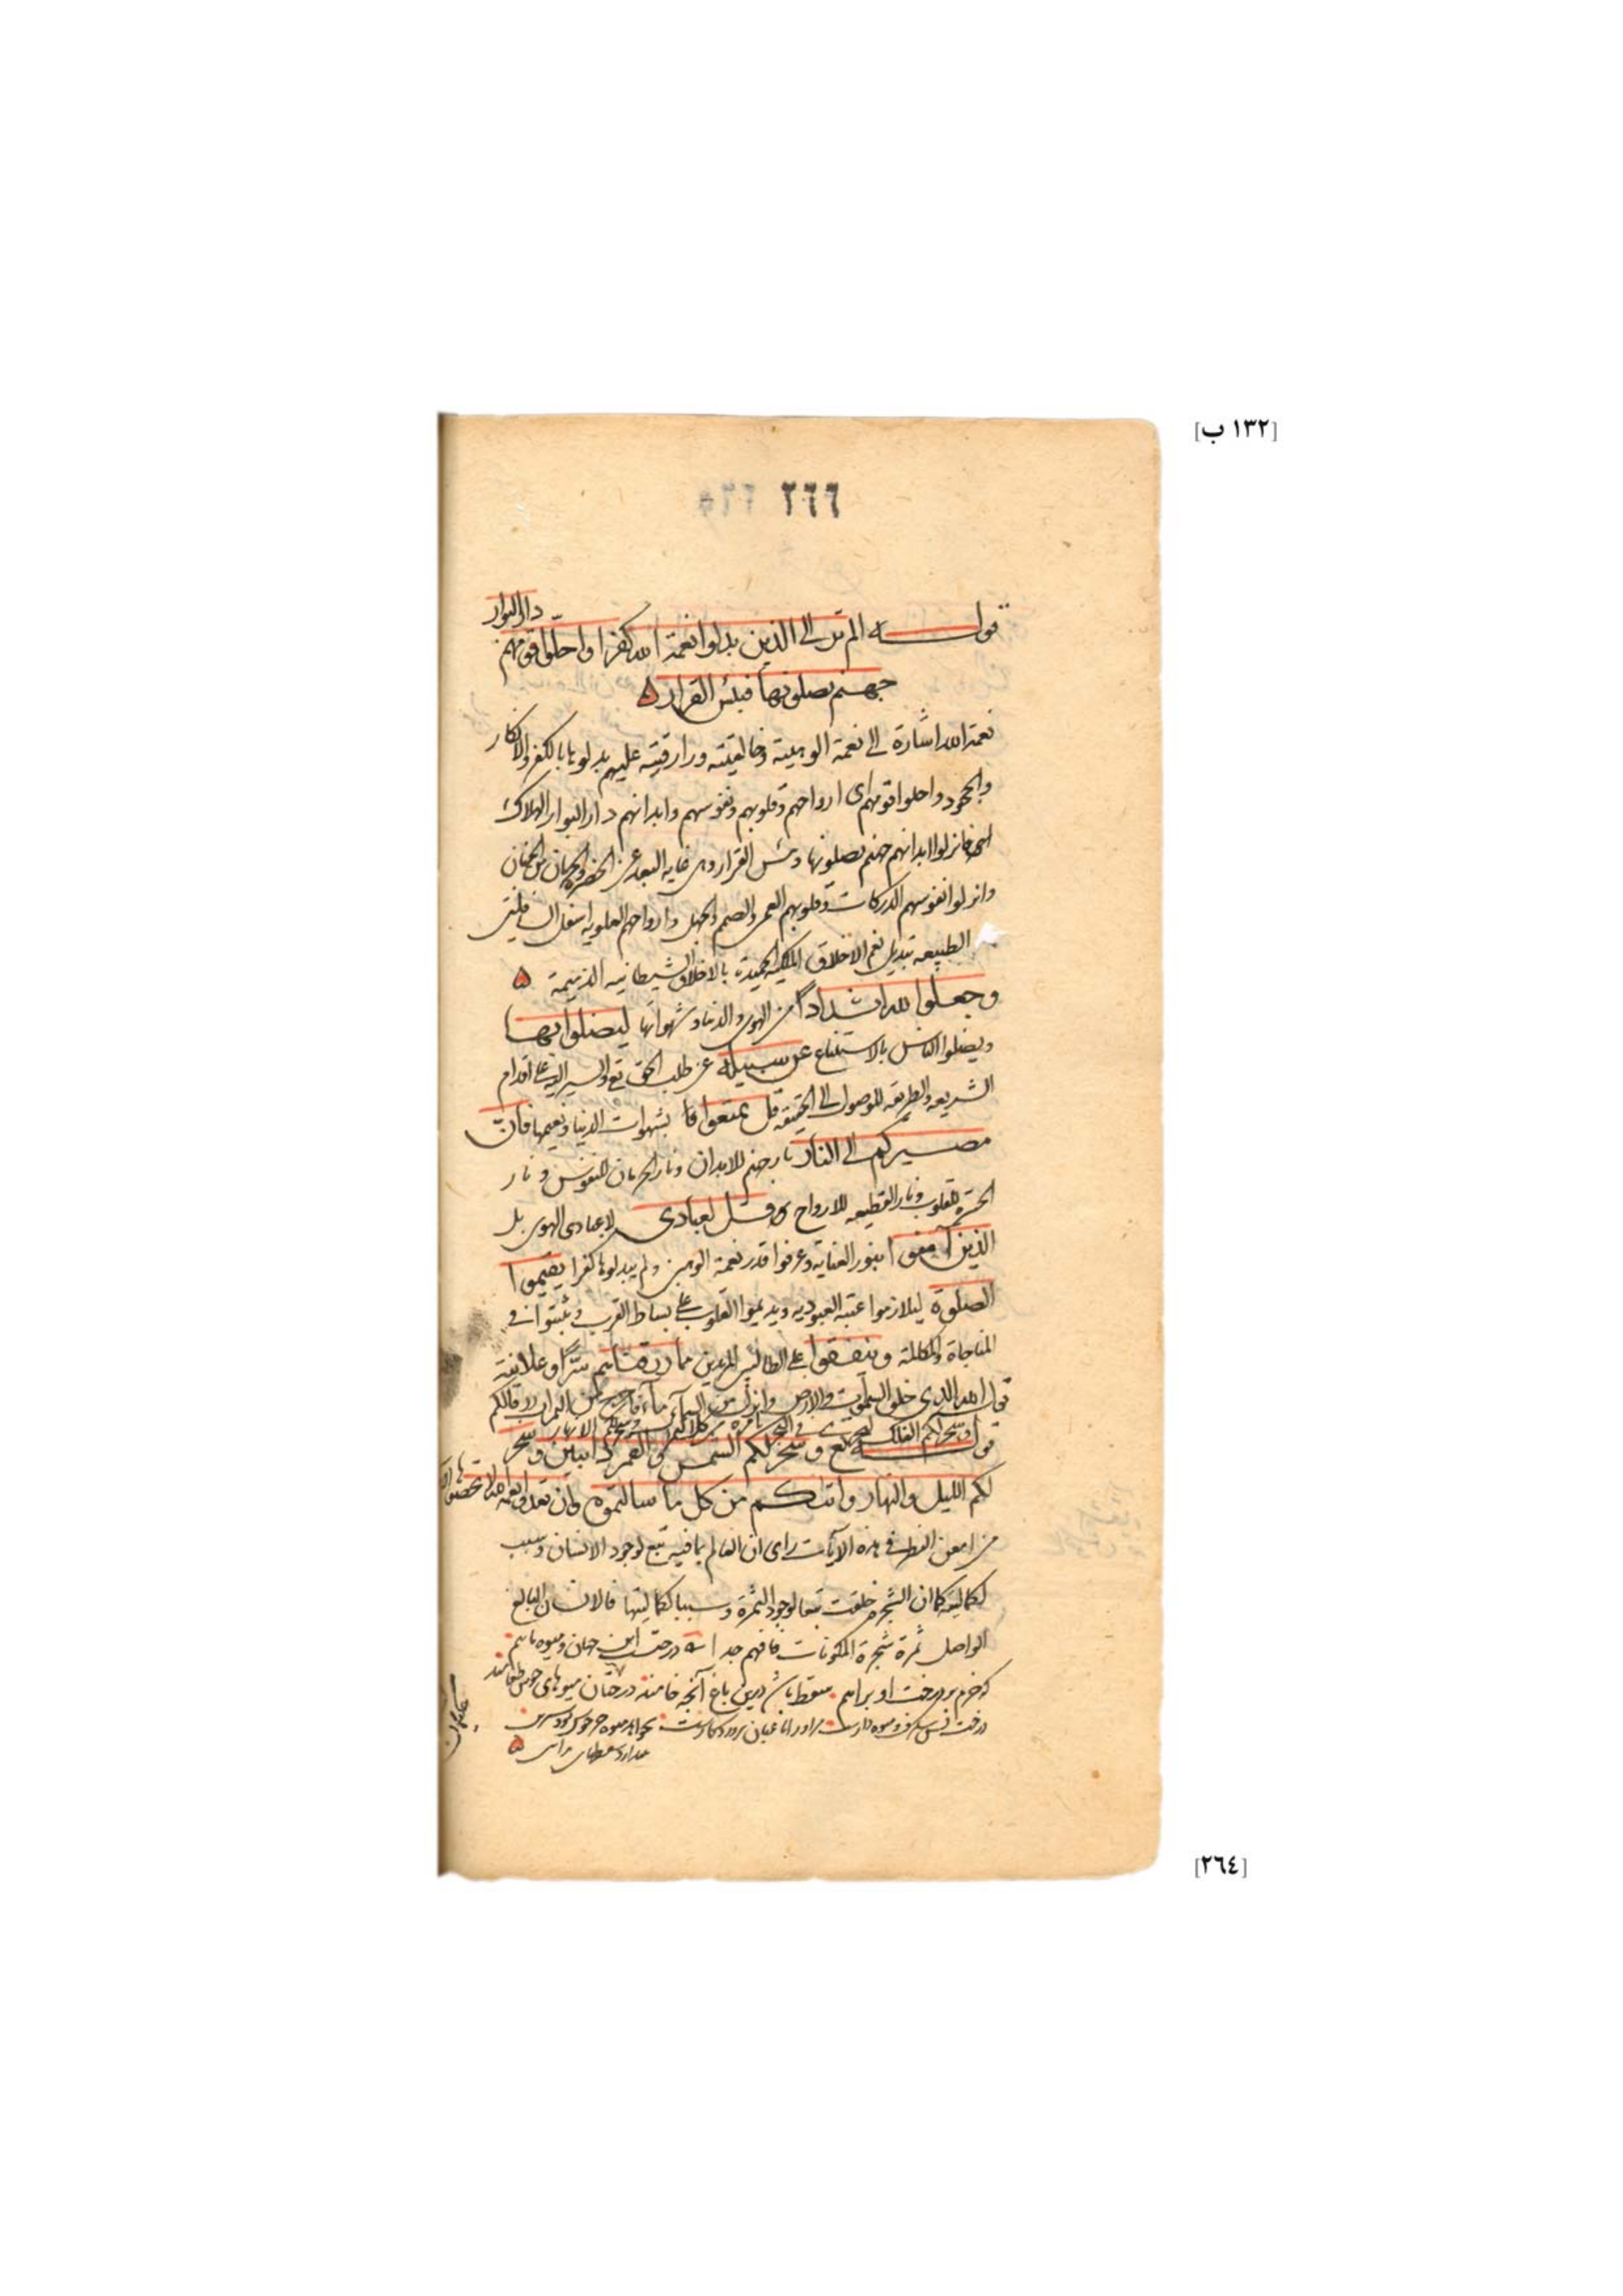 [١٣٢ ب]
٢٦٦
قوله الم تر الى الذين بدلوا نعمة الله كفرا واحلّوا قومهم دار البوار
جهنم يصلونها فبئس القرار
نعمة الله اشارة الى نعمة الوهيته وخالقيته ورازقيته عليهم بدلوها بالكفر والانكار
والجحود واحلوا قومهم اى ارواحهم وقلوبهم ونفوسهم وابدانهم دار البوار الهلاك
فانزلوا ابدانهم جهنم يصلونها وبئس القرار وهى غاية البعد عن الحضرة والحرمان عن الجنان
وانزلوا نفوسهم الدركات وقلوبهم العمى والصمم والجهل وارواحهم العلوية اسفل السافلين
الطبيعه تبديل نعم الاخلاق الملكية الحميدة بالاخلاق الشيطانيه الذميمة
وجعلوا لله اندادًا من الهوى والدنيا وشهواتها ليضلوا بها
ويضلوا الناس بالاستتباع عن سبيله عن طلب الحق تع والسير اليه على اقدام
الشريعه والطريقه للوصول الى الحقيقه قل تمتعوا بشهوات الدنيا ونعيمها فانّ
مصيركم الى النار نار جهنم للابدان ونار الحرمان للنفوس ونار
الحسرة للقلوب ونار القطيعه للارواح قل لعبادى لا عبادى الهوى بل
الذين آمنوا بنور العناية وعرفوا قدر نعمة الوهيتى ولم يبدلوها كفرا يقيموا
الصلوة ليلازموا عتبة العبوديه ويديموا القلوب على بساط القرب ويثبتوا فى
المناجاة والمكالمة وينفقوا على الطالبين المريدين مما رزقناهم سرًّا وعلانية
قوله الله الذى خلق السموات والارض وانزل من السماء ماء فاخرج به من الثمرات رزقا لكم
وسخر لكم الفلك لتجرى فى البحر بامره وسخر لكم الانهار
قوله تع وسخر لكم الشمس والقمر دائبين وسخر
لكم الليل والنهار واتاكم من كل ما سالتموه وان تعدوا نعمة الله لا تحصوها
من امعن النظر فى هذه الآيات راى ان العالم بما فيه تبع لوجود الانسان وسبب
لكماليته كما ان الشجره خلقت تبعا لوجود الثمرة وسببا لكماليتها فالانسان البالغ
الواصل ثمرة شجرة المكونات فافهم جدا درخت اين جهان وميوه مايم
كه خرم بر درخت او برايم سقط باش درين باغ آنچه خامند درختان ميوهاى خوش طعامند
[٢٦٤]